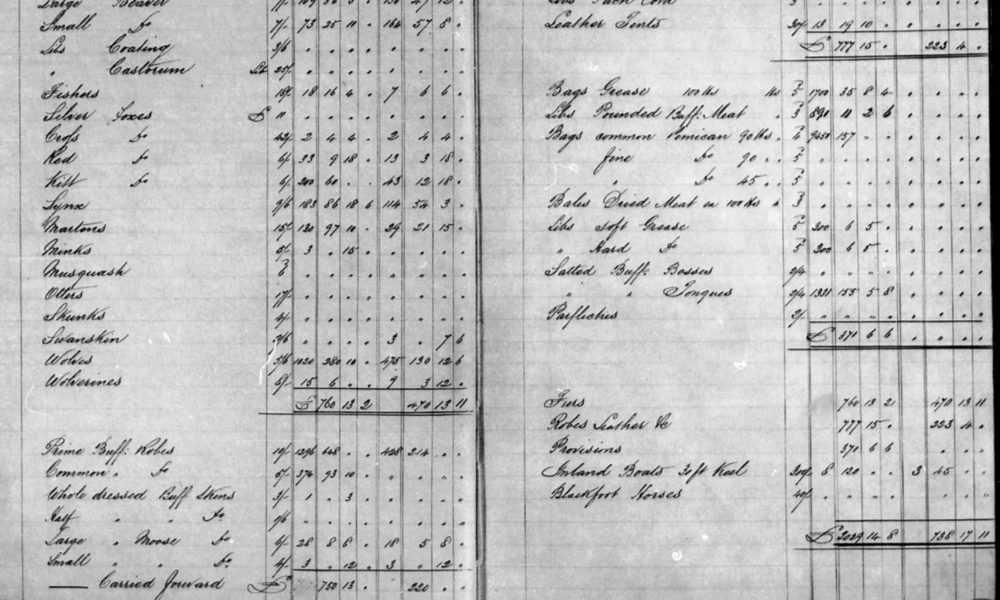 Large Beaver
Small do 7/- 73 25 11 . 164 57 8 .
Lbs Coating 2/6 . . . . . . . .
" Castorum 25/ . . . . . . . .
Fishers 18/ 18 16 4 . 7 6 6 .
Silver Foxes £ 11 . . . . . . . .
Cross do 42/ 2 4 4 . 2 4 4 .
Red do 6/ 33 9 18 . 13 3 18 .
Kitt do 6/ 200 60 . . 43 12 18 .
Lynx 9/6 183 86 18 6 114 54 3 .
Martens 15/ 130 97 10 . 29 21 15 .
Minks 5/ 3 . 15 . . . . .
Musquash . . . . . . . .
Otters 17/ . . . . . . . .
Skunks 4/ . . . . . . . .
Swanskin 2/6 . . . . 3 . 7 6
Wolves 5/6 1020 280 10 . 475 130 12 6
Wolverines 8/ 15 6 . . 9 3 12 .
£ 760 13 2 470 13 11
Prime Buff: Robes 10/ 1296 648 . . 428 214 . .
Common " do 5/ 374 93 10 . . . . .
Whole dressed Buff Skins 3/ 1 . 3 . . . . .
Half " " do . . . . . . . .
Large " Moose do 6/ 28 8 8 . 18 5 8 .
Small " " do 4/ 3 . 12 . 3 . 12 .
Carried forward £ 750 13 . 220 . .
Leather Tents 30/ 13 19 10 . . . . .
£ 777 15 . 223 4 .
Bags Grease 100 lbs 1700 35 8 4 . . . .
Lbs Pounded Buff: Meat 890 11 2 6 . . . .
Bags common Pemican 90 lbs 9450 157 . . . . . .
" fine do 90 . . . . . . . .
" " do 45 . . . . . . . .
Bales Dried Meat ea 100 lbs . . . . . . . .
Lbs Soft Grease 200 6 5 . . . . .
" Hard do 200 6 5 . . . . .
Salted Buff: Bosses 2/4 . . . . . . . .
" " Tongues 2/4 1331 155 5 8 . . . .
Parfleches 2/ . . . . . . . .
£ 370 6 6 . . . .
Furs 760 13 2 470 13 11
Robes Leather &c 777 15 . 223 4 .
Provisions 370 6 6 . . .
Inland Boats 30 ft Keel 300/ 8 120 . . 3 45 . .
Blackfoot Horses 40/ . . . . . . . .
£ 2029 14 8 738 17 11